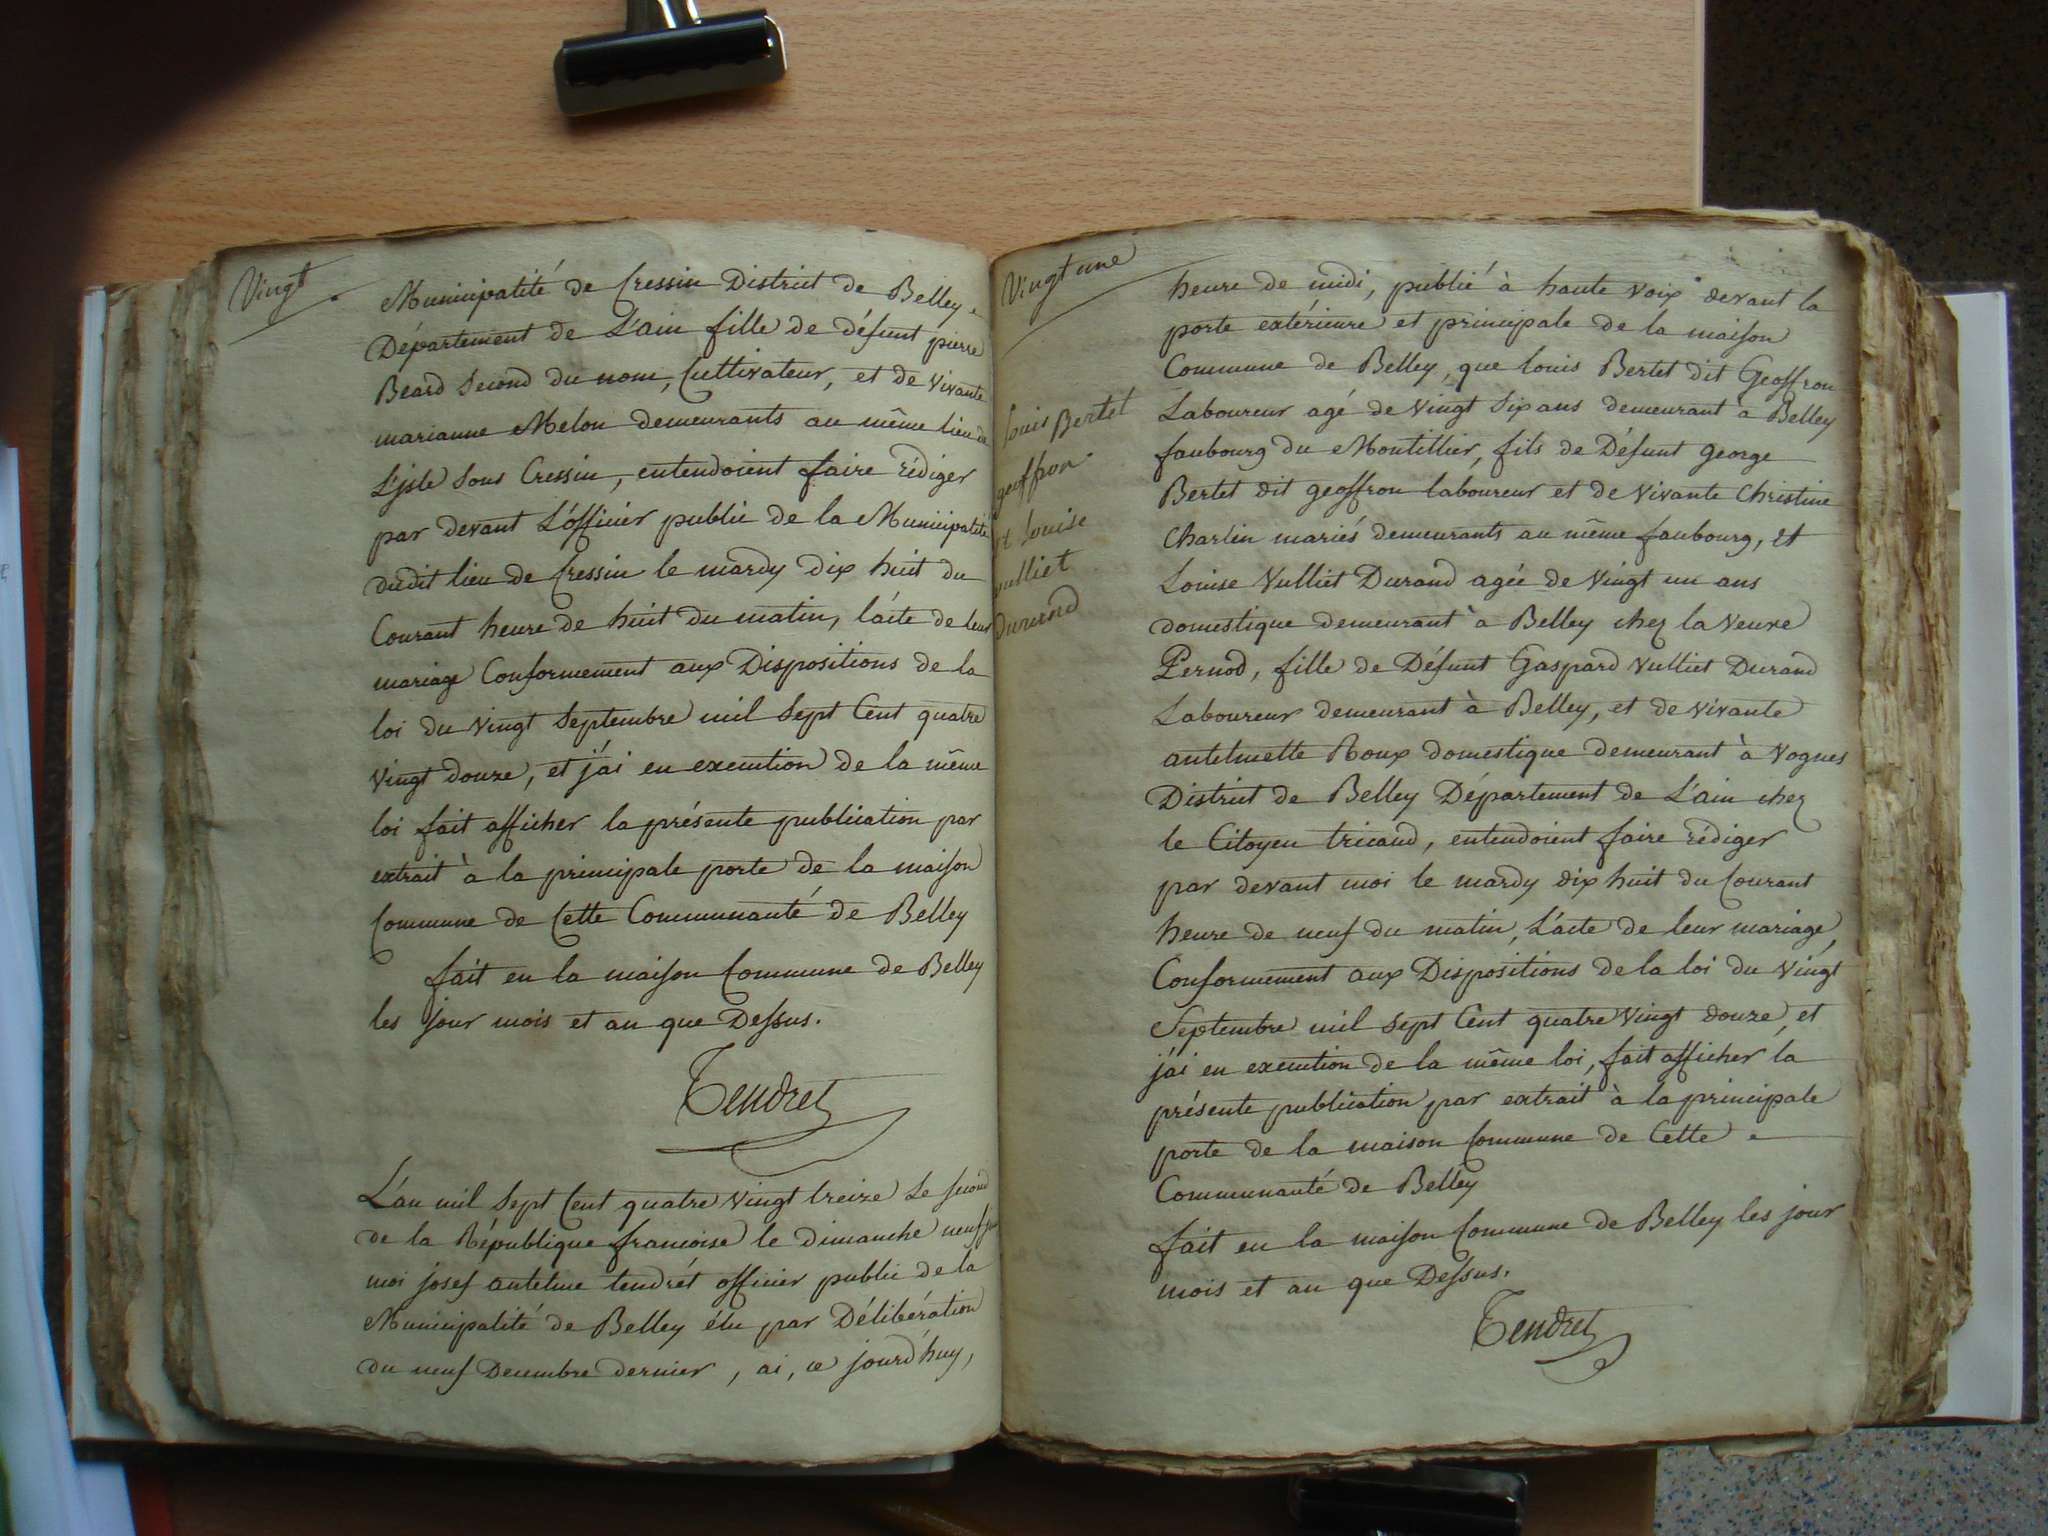 Vingt
Municipalité de Cressin District de Belley
Département de L'ain fille de défunt pierre
Beard Second du nom, Cultivateur, et de vivante
marianne Melon demeurants au même lieu de
L'jsle Sous Cressin, entendoient faire rédiger
par devant L'officier public de la Municipalité
dudit lieu de Cressin le mardy dix huit du
Courant heure de huit du matin, l'acte de leur
mariage Conformement aux Dispositions de la
loi du vingt Septembre mil Sept Cent quatre
Vingt douze, et j'ai en execution de la même
loi fait afficher la présente publication par
extrait à la principale porte de la maison
Commune de Cette Communauté de Belley
fait en la maison Commune de Belley
les jour mois et an que Dessus.
Tendret
L'an mil Sept Cent quatre Vingt treize Le second
de la République francoise le Dimanche neuf juin
moi josef antelme tendrét officier public de la
Municipalité de Belley élu par Délibération
du neuf Decembre dernier, ai, ce jourd'huy,
Vingt une
Louis Bertet
geoffron
et Louise
vulliet
Durand
heure de midi, publié à haute voix devant la
porte extérieure et principale de la maison
Commune de Belley, que Louis Bertet dit Geoffron
Laboureur agé de Vingt Six ans demeurant a Belley
faubourg du Montillier, fils de Défunt george
Bertet dit geoffron laboureur et de Vivante Christine
Charlin mariés demeurants au même faubourg, et
Louise Vulliet Durand agée de Vingt un ans
domestique demeurant à Belley chez la Veuve
Pernod, fille de Défunt Gaspard Vulliet Durand
Laboureur demeurant à Belley, et de vivante
antelmette Roux domestique demeurant à Vognes
District de Belley Département de L'ain chez
le Citoyen tricaud, entendoient faire rédiger
par devant moi le mardy dix huit du Courant
heure de neuf du matin, L'acte de leur mariage,
Conformement aux Dispositions de la loi du Vingt
Septembre mil Sept Cent quatre Vingt douze, et
j'ai en execution de la même loi, fait afficher la
présente publication par extrait à la principale
porte de la maison Commune de Cette
Communauté de Belley
fait en la maison Commune de Belley les jour
mois et an que Dessus.
Tendret